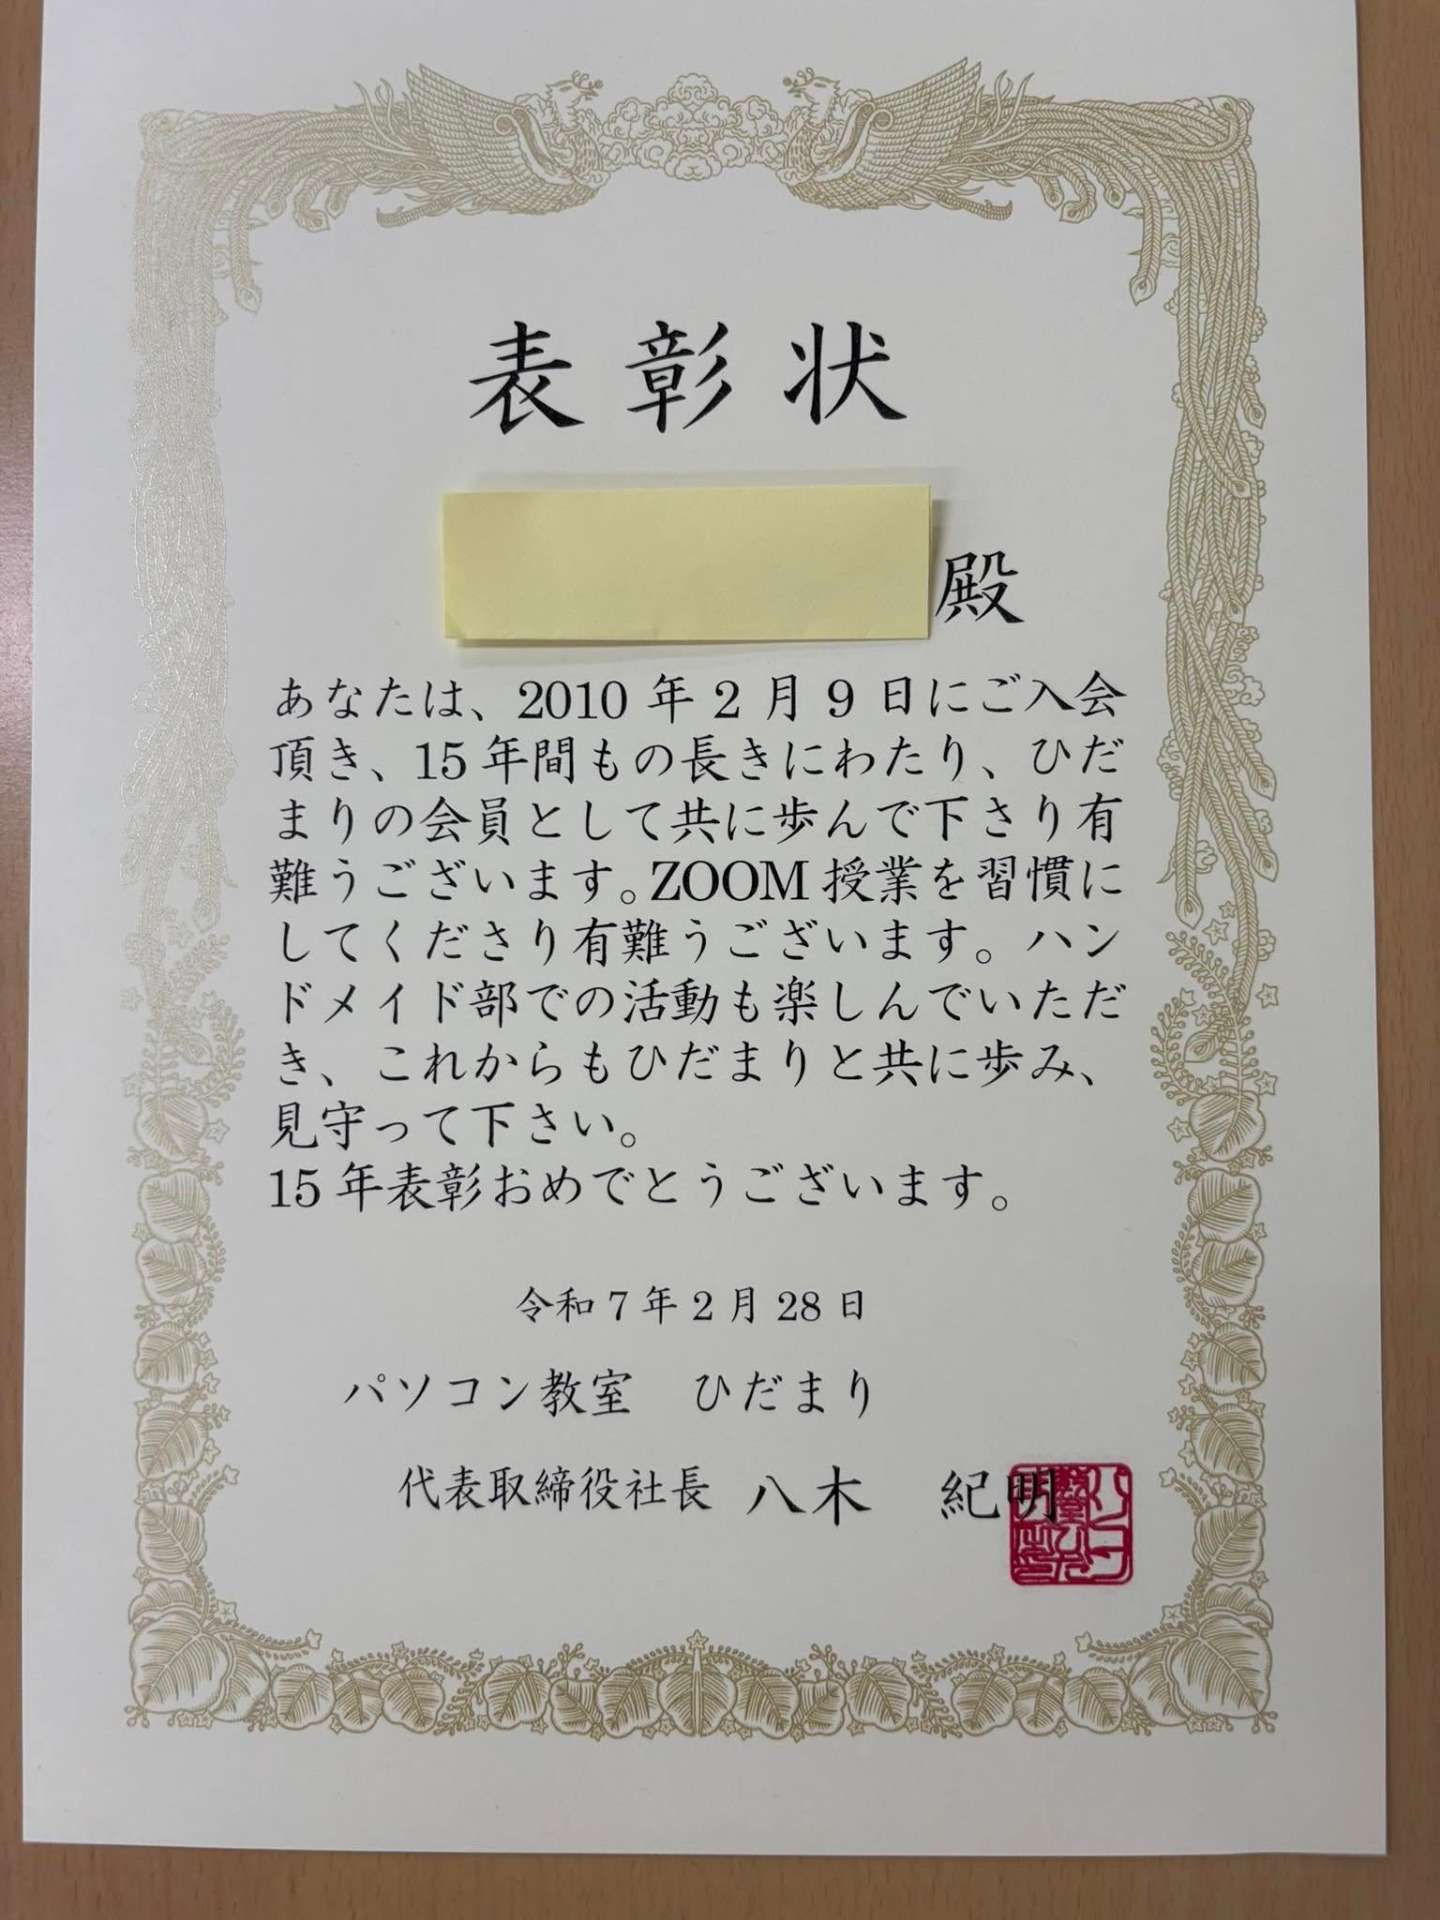 表彰状
殿
あなたは、2010年2月9日にご入会
頂き、15年間もの長きにわたり、ひだ
まりの会員として共に歩んで下さり有
難うございます。ZOOM授業を習慣に
してくださり有難うございます。ハン
ドメイド部での活動も楽しんでいただ
き、これからもひだまりと共に歩み、
見守って下さい。
15年表彰おめでとうございます。
令和7年2月28日
パソコン教室　ひだまり
代表取締役社長 八木　紀明